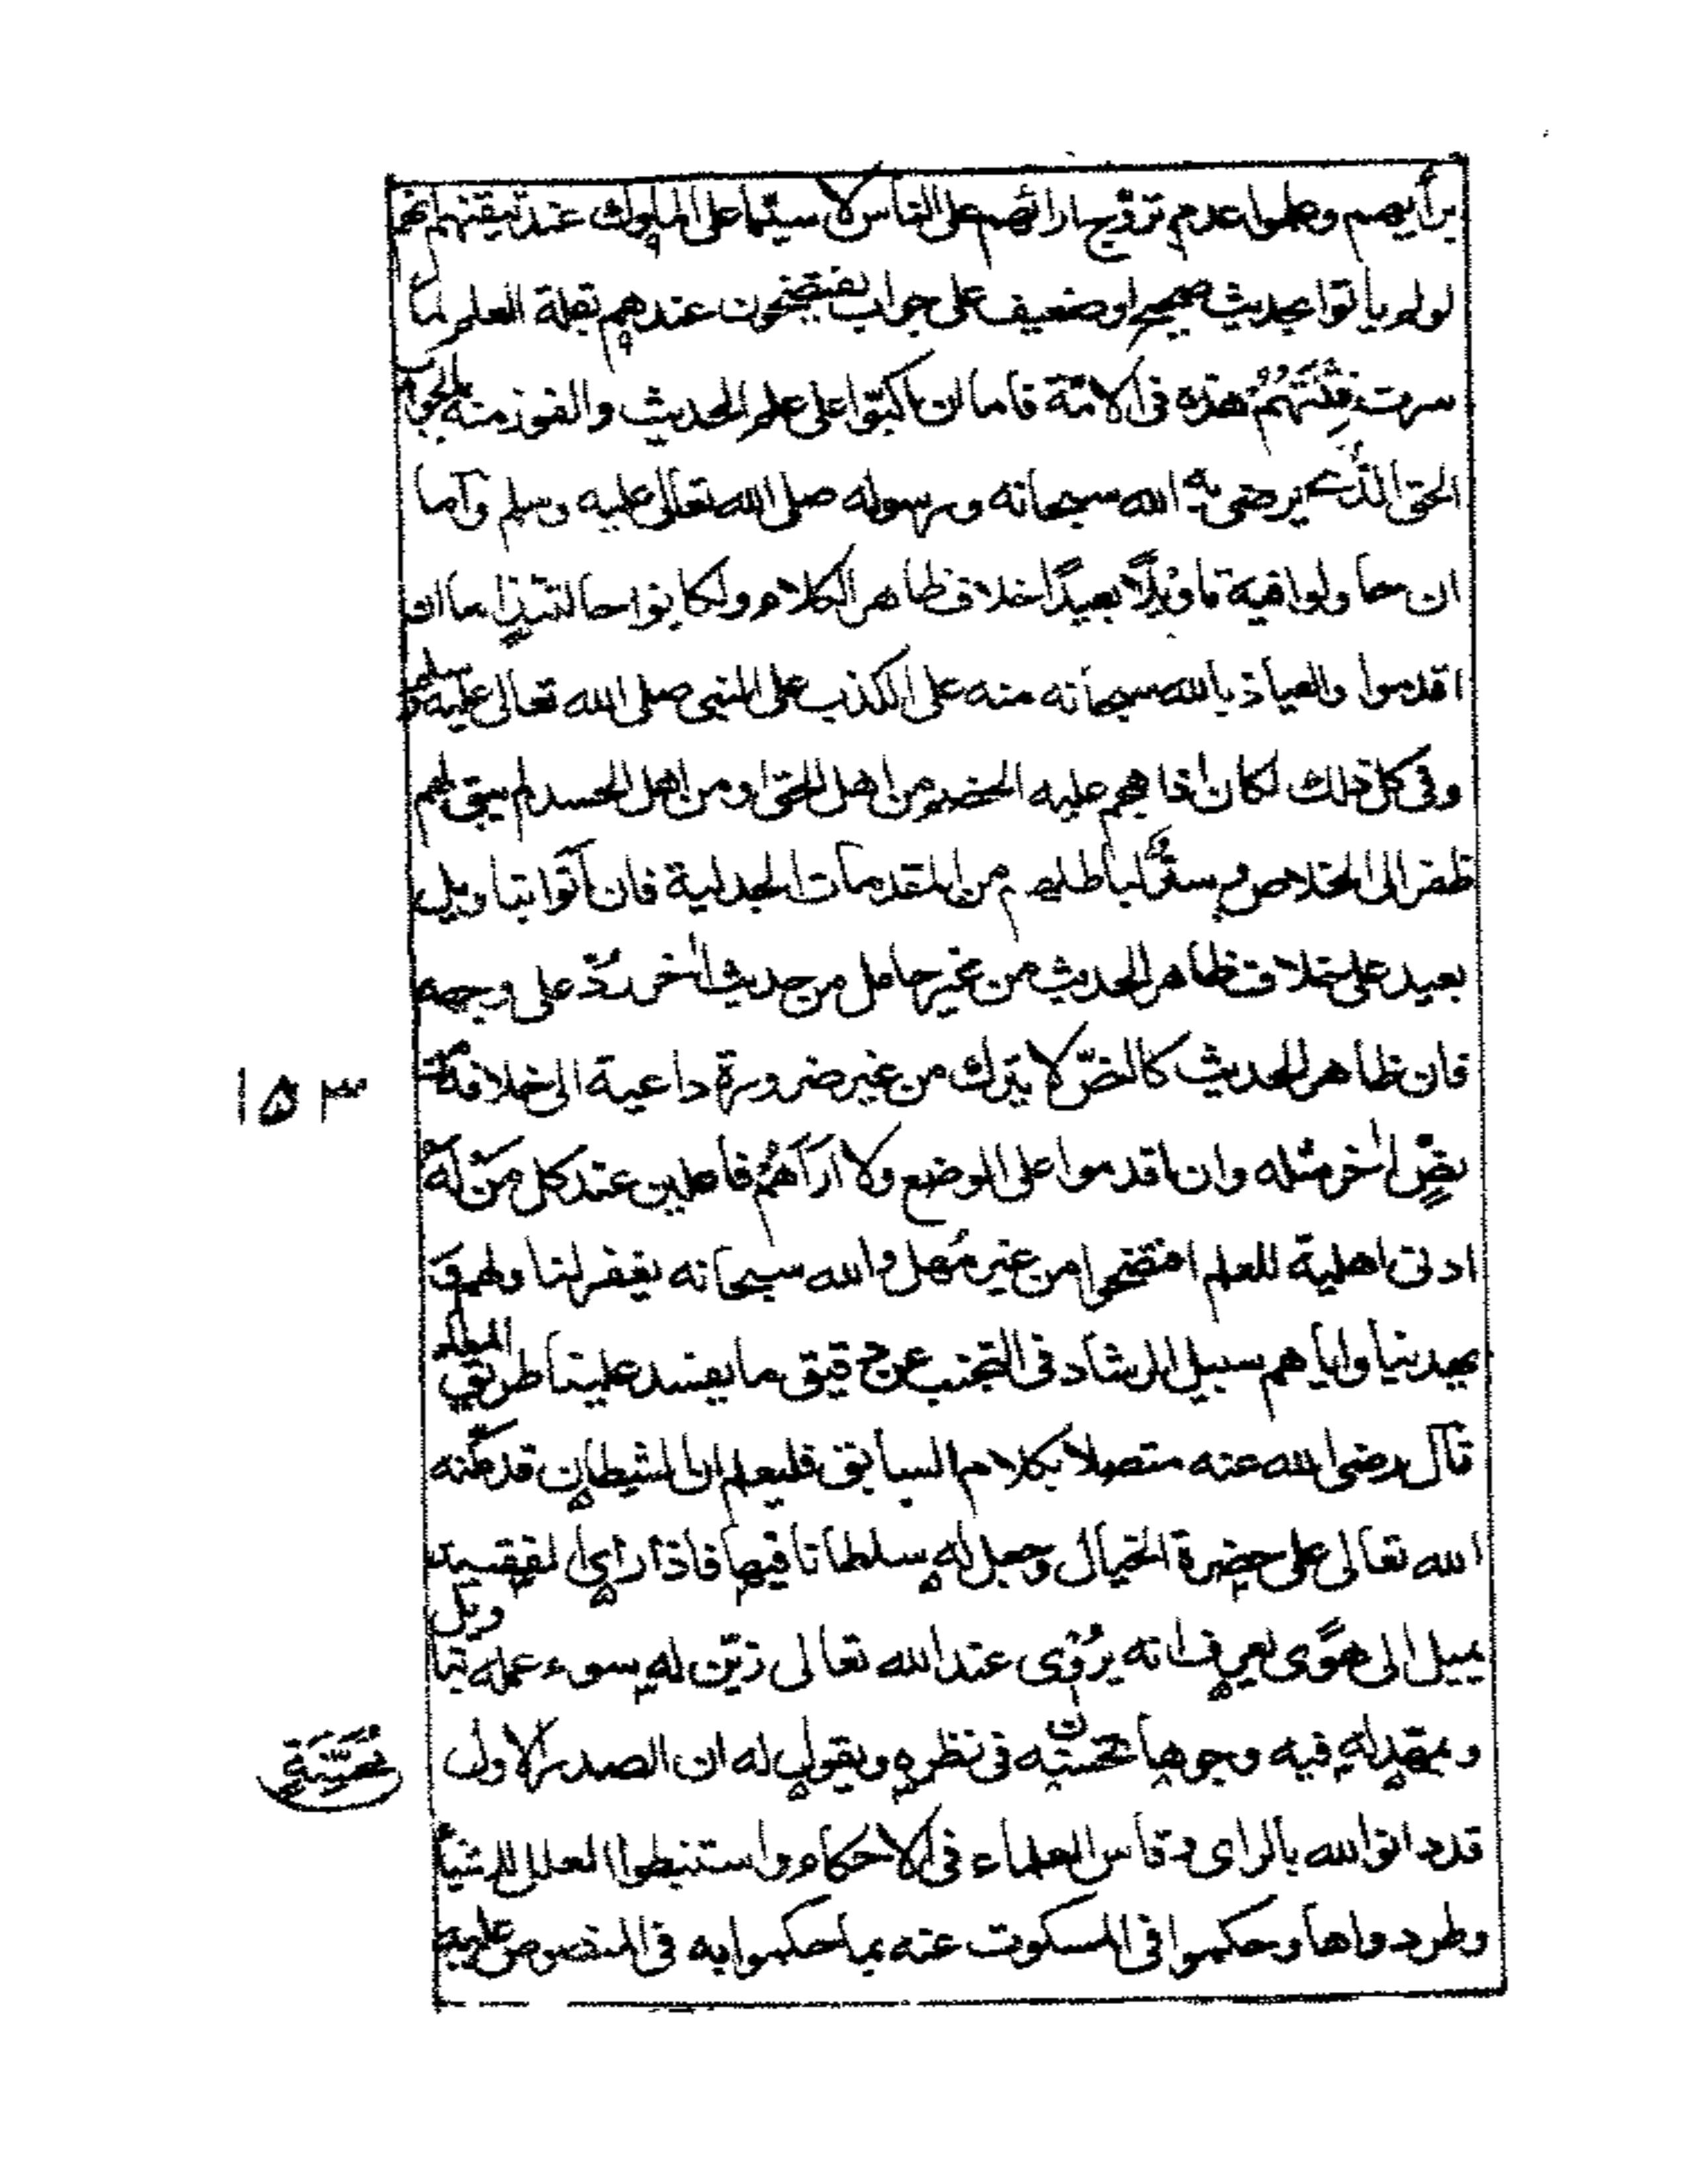 برأيهم وعلموا عدم تروّج ارائهم على الناس لا سيّما على الملوك عند تيقنهم انهم
لو لم يأتوا بحديث صحيح او ضعيف على جواب يفتضحون عندهم بقلة العلم لما
سرت فتنتهم هذه في الامّة فاما ان اكبّوا على علم الحديث والفوز منه بالجواب
الحق الذي يرضى به الله سبحانه ورسوله صلى الله تعالى عليه وسلم وآما
ان حاولوا فيه تاويلًا بعيدًا خلاف ظاهر الكلام ولكانوا حالتئذٍ اما ان
اقدموا والعياذ بالله سبحانه منه على الكذب على النبي صلى الله تعالى عليه وسلم
وفى كل ذلك لكان اذا هجم عليه الخصوم من اهل الحق او من اهل الحسد لم يبق لهم
ظفر الى الخلاص وستر لباطلهم من المقدمات الجدلية فان آتوا بتاويل
بعيد على خلاف ظاهر الحديث من غير حامل من حديث اٰخر ردّ على وجهه
فان ظاهر الحديث كالنصّ لا يترك من غير ضرورة داعية الى خلافه من
نصٍّ اٰخر مثله وان اقدموا على الوضع ولا ارآهُم فاعلين عند كل مَنْ لَهُ
ادنى اهلية للعلم افتضحوا من غير مُهل والله سبحانه يغفر لنا ولهم و
يهدينا واياهم سبيل الرشاد في التجنب عن دقيق ما يفسد علينا طريق المعاد
قآل رضى الله عنه متصلا بكلامه السابق فليعلم ان الشيطان قد مكّنه
الله تعالى على حضرة الخيال وجعل له سلطانا فيها فاذا رأى الفقيه
يميل الى هوًى يعرف انه يُرْدِى عند الله تعالى زيّن له سوء عمله بتاويل
ويمهد له فيه وجوها تحسنه فى نظره ويقول له ان الصدر الاول
قد دانوا الله بالراى وقاس العلماء فى الاحكام واستنبطوا العلل للاشيآ
وطردواها وحكموا فى المسكوت عنه بما حكموا به فى المنصوص عليه
١٥٣